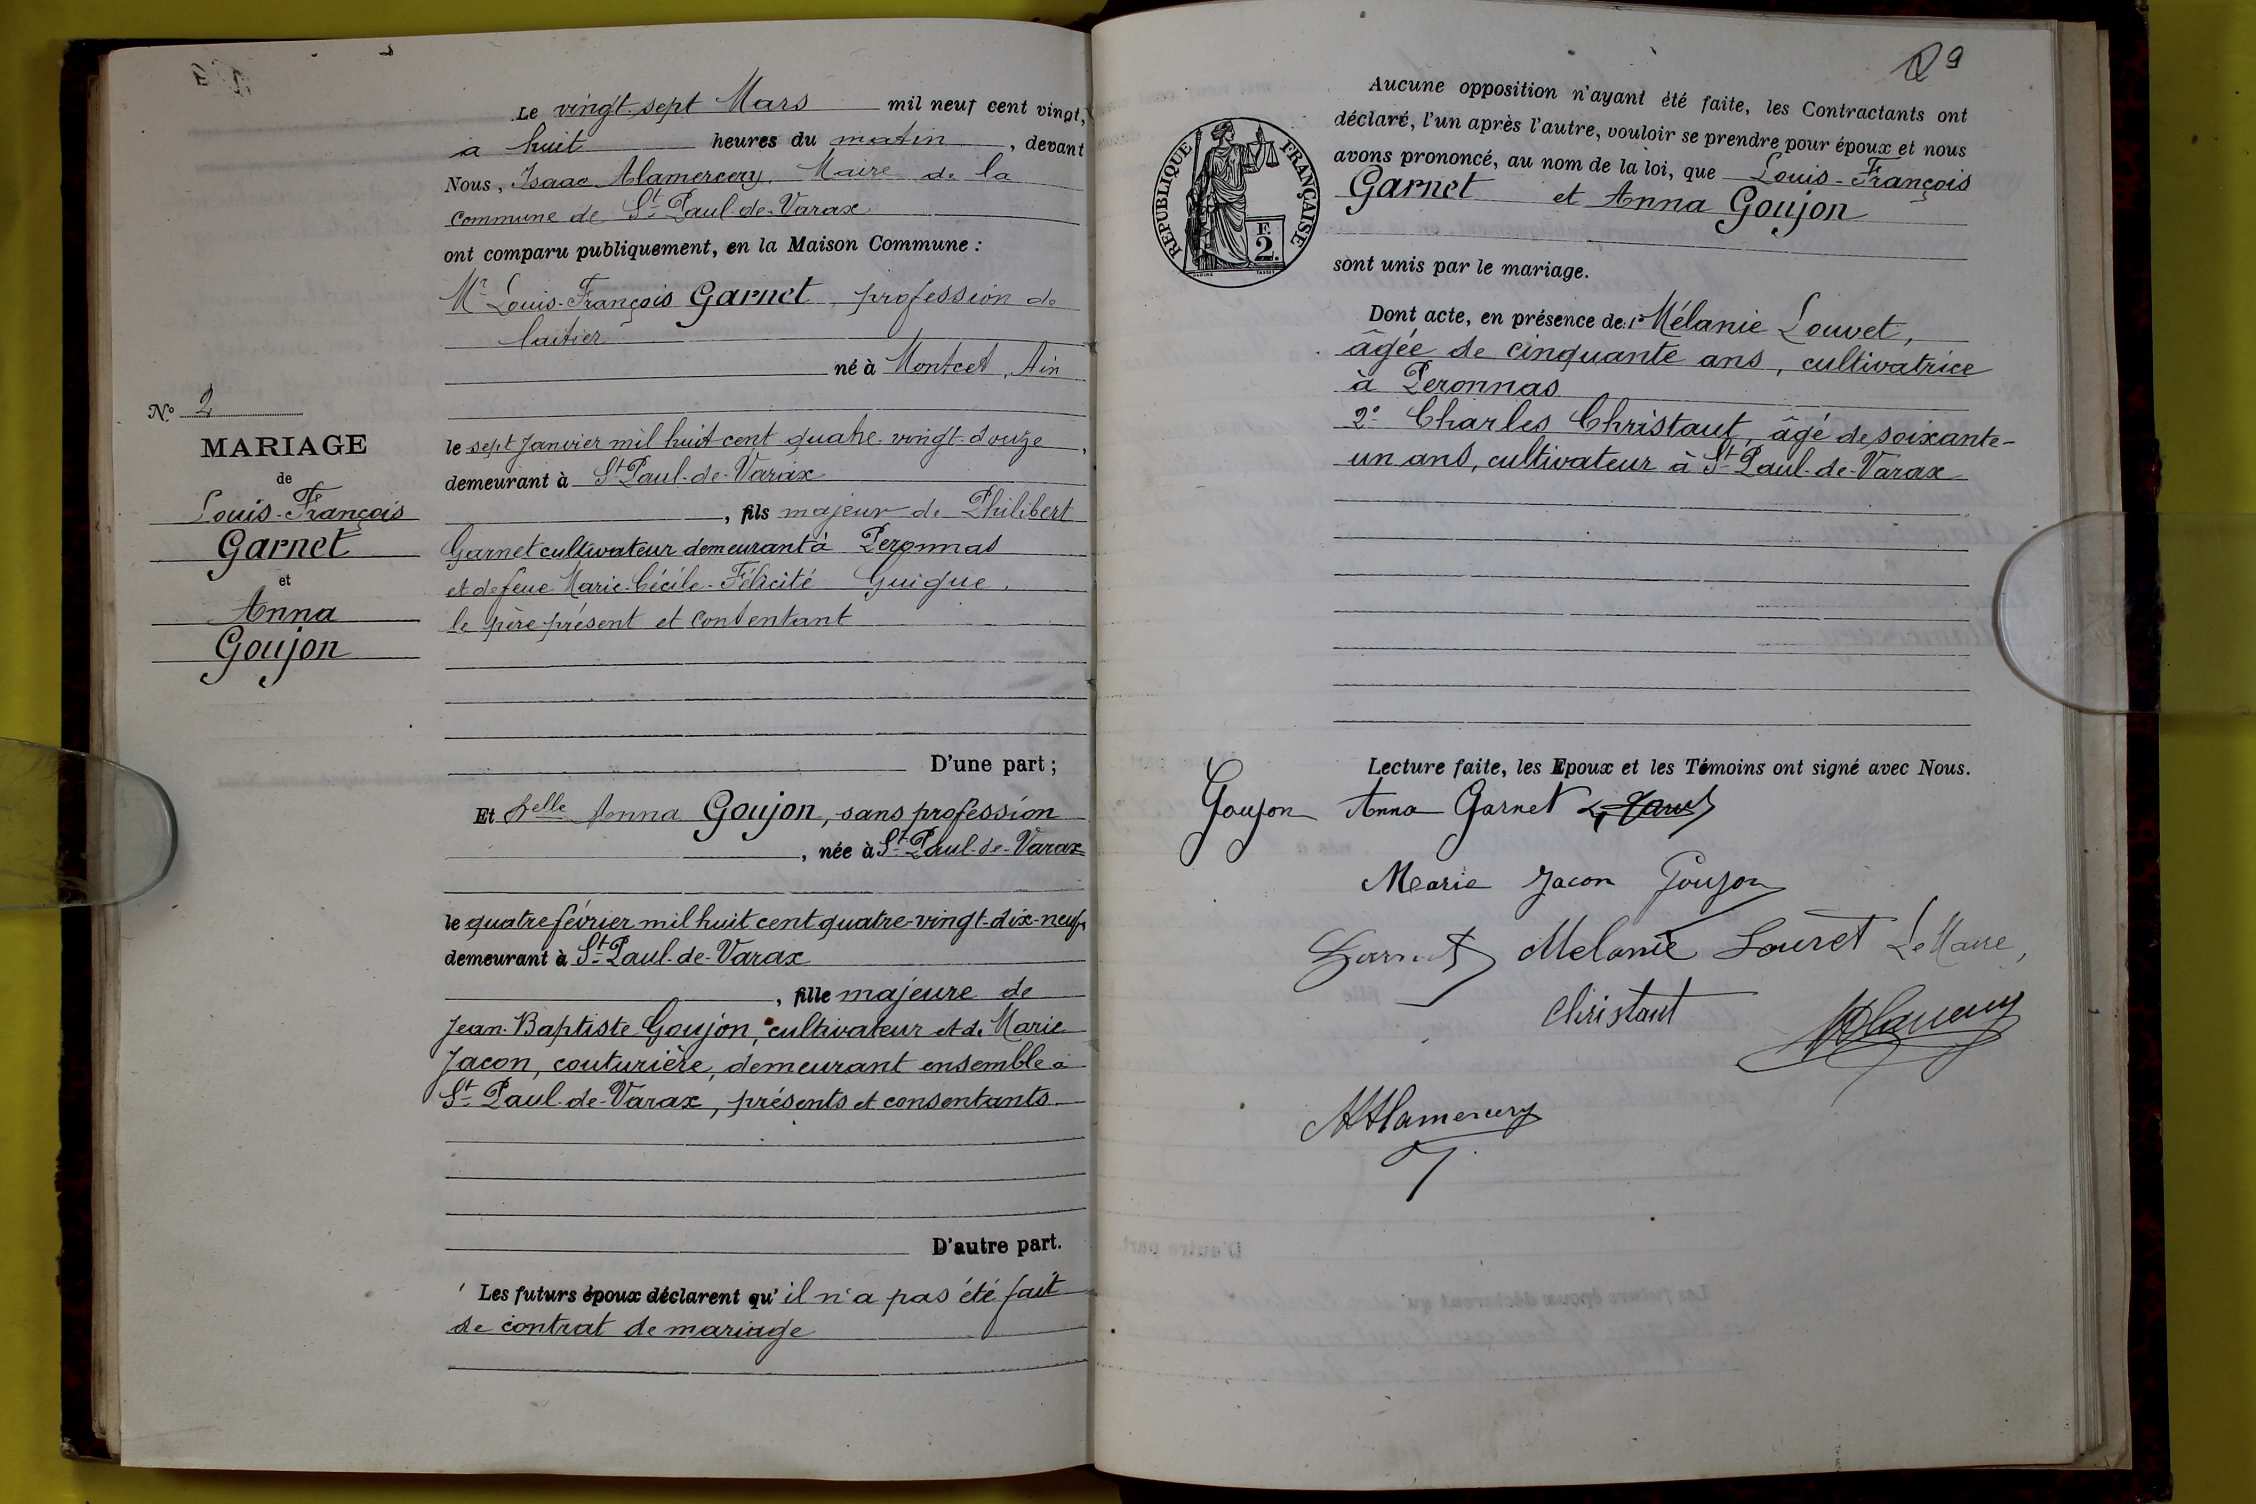 Le vingt-sept Mars mil neuf cent vingt,
à huit heures du matin, devant
Nous, Isaac Alamercery, Maire de la
commune de St Paul-de-Varax
ont comparu publiquement, en la Maison Commune :
Mr Louis-François Garnet, profession de
laitier
né à Montcet, Ain
No 2
MARIAGE
de
Louis-François
Garnet
et
Anna
Goujon
le sept Janvier mil huit cent quatre-vingt-douze,
demeurant à St Paul-de-Varax
, fils majeur de Philibert
Garnet cultivateur demeurant à Peronnas
et de feue Marie-Cécile-Félicité Guigue,
le père présent et consentant
D'une part ;
Et Delle Anna Goujon, sans profession
, née à St Paul-de-Varax
le quatre février mil huit cent quatre-vingt-dix-neuf,
demeurant à St Paul-de-Varax
, fille majeure de
Jean-Baptiste Goujon, cultivateur et de Marie
Jacon, couturière, demeurant ensemble à
St Paul-de-Varax, présents et consentants
D'autre part.
Les futurs époux déclarent qu'il n'a pas été fait
de contrat de mariage
9
Aucune opposition n'ayant été faite, les Contractants ont
déclaré, l'un après l'autre, vouloir se prendre pour époux et nous
avons prononcé, au nom de la loi, que Louis-François
Garnet et Anna Goujon
sont unis par le mariage.
REPUBLIQUE FRANÇAISE
F.
2.
Dont acte, en présence de: 1º Mélanie Louvet,
âgée de cinquante ans, cultivatrice
à Peronnas
2º Charles Christaut, âgé de soixante-
un ans, cultivateur à St Paul-de-Varax
Lecture faite, les Epoux et les Témoins ont signé avec Nous.
Goujon Anna Garnet L. Garnet
Marie Jacon Goujon
Garnet Melanie Louvet Le Maire,
Christaut
Alamercery